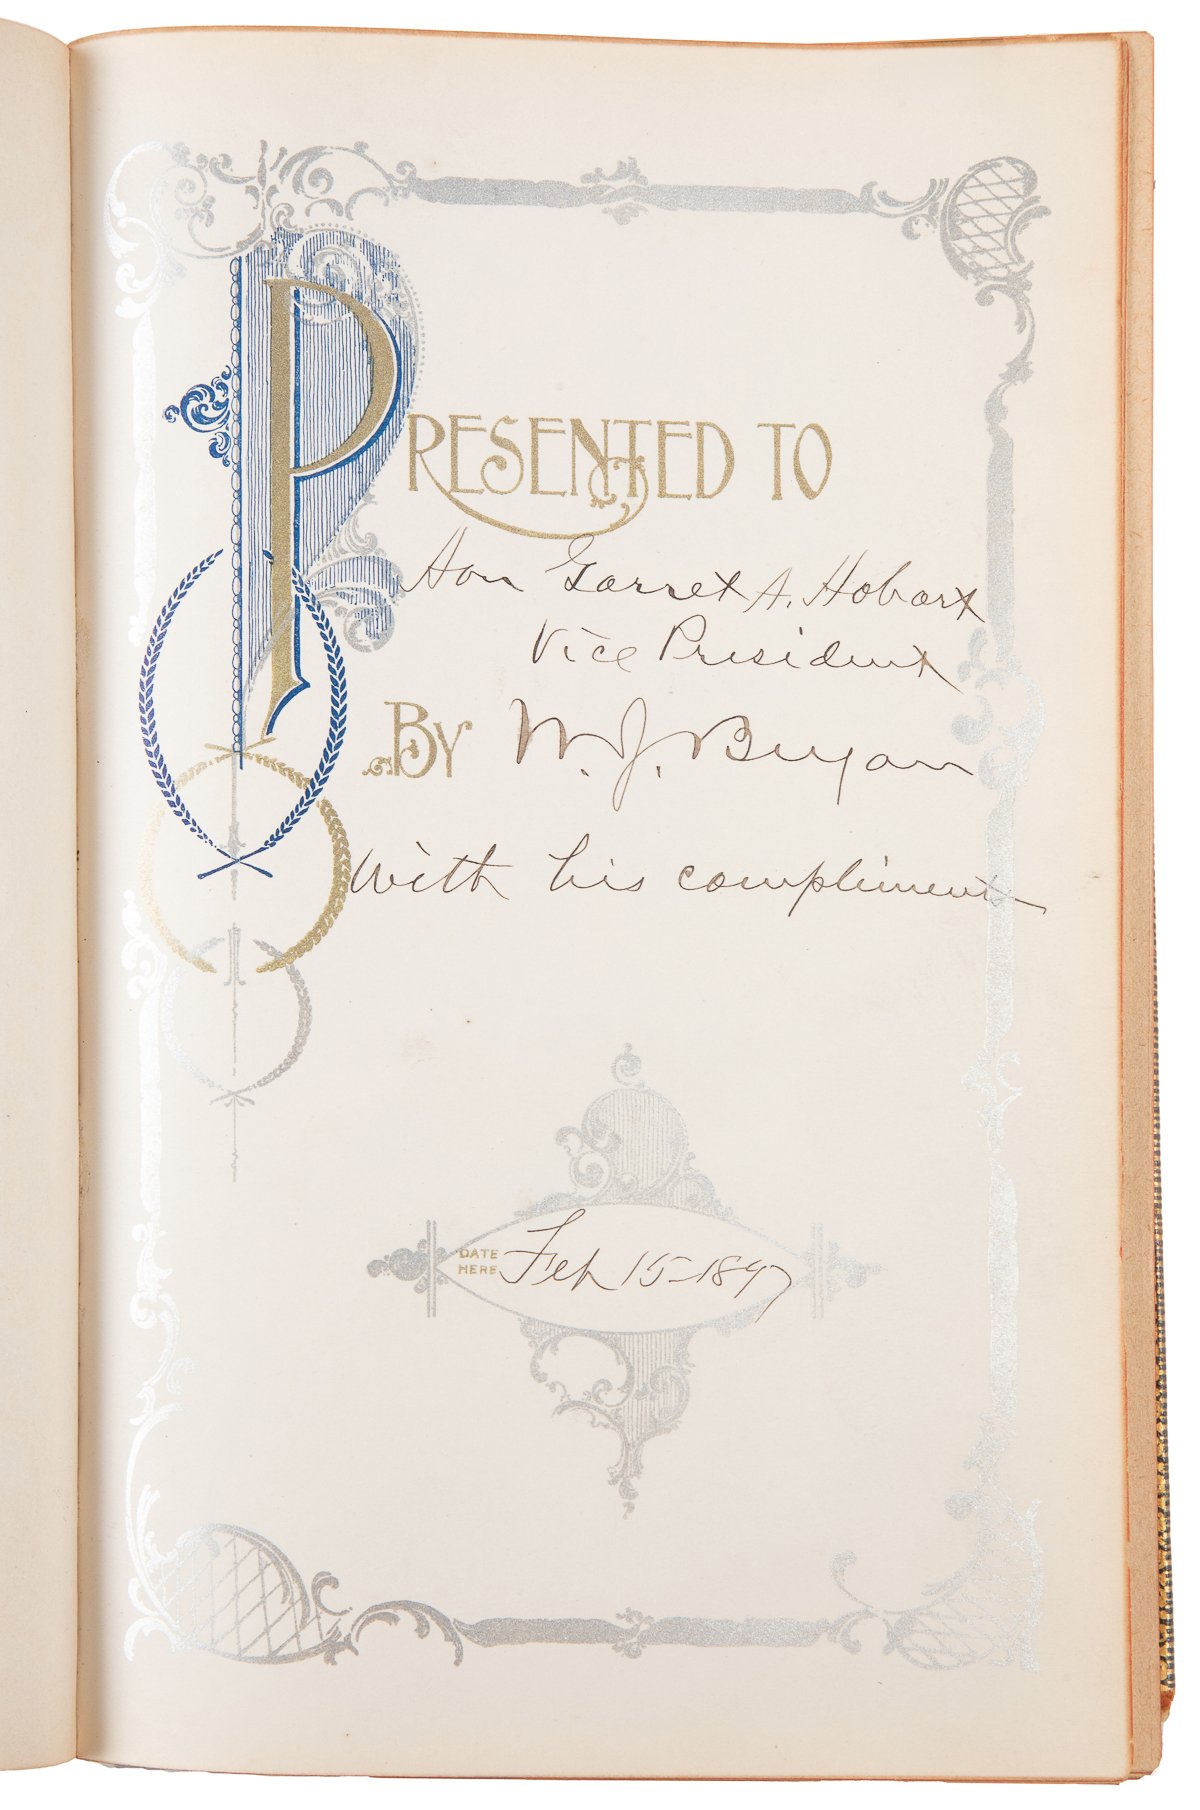 PRESENTED TO
Hon Garret A. Hobart
Vice President
BY W. J. Bryan
With his compliments
DATE
HERE
Feb 15-1897